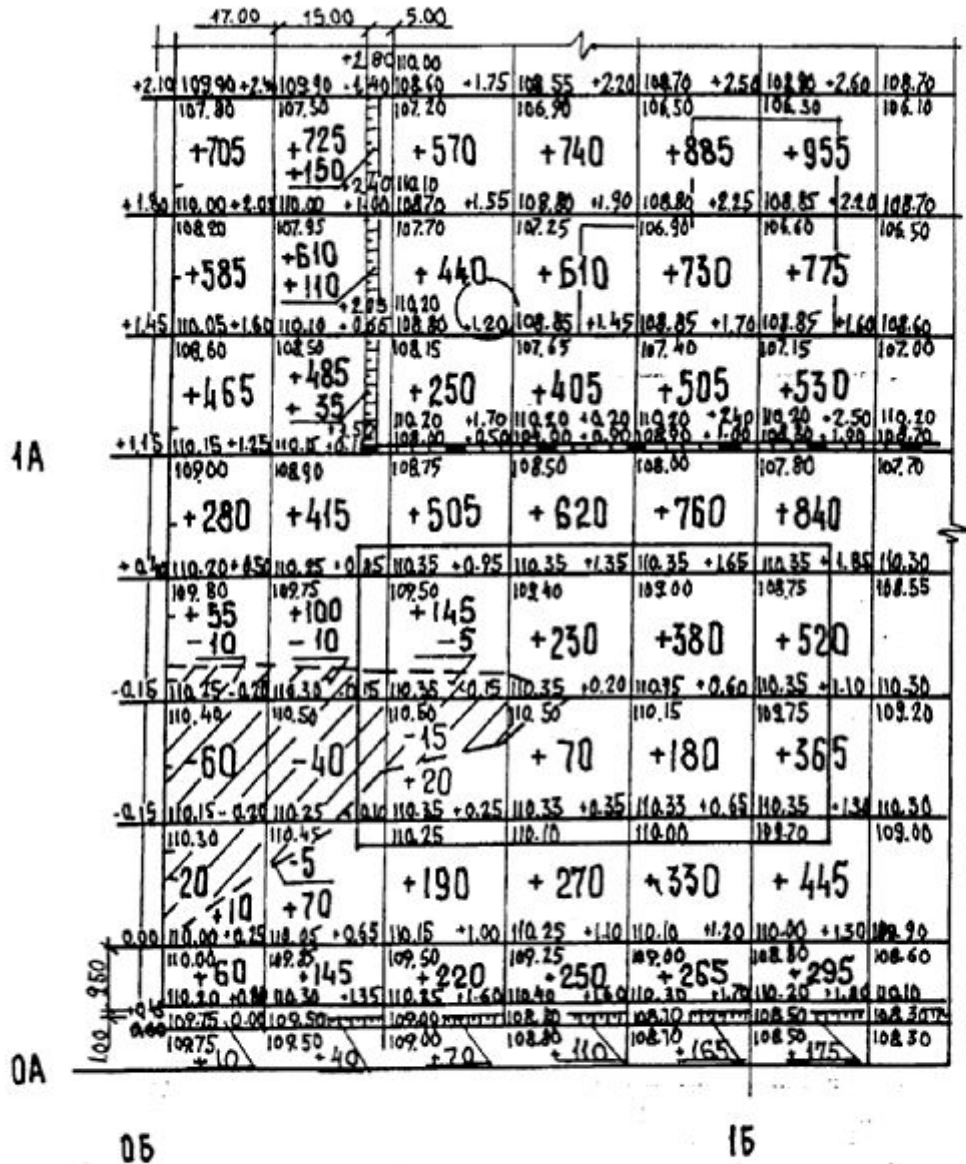 17.00 15.00 5.00
+2.80 110.00
+2.10 109.90 109.90 108.60 +1.75 108.55 +2.20 108.70 +2.50 +2.60 108.70
107.80 107.50 107.20 106.90 106.50 106.30 106.10
+705 +725 +570 +740 +885 +955
+150
+2.40 110.10
110.00 110.00 108.70 +1.55 108.80 +1.90 108.80 +2.25 108.85 +2.20 108.70
107.95 107.70 107.25 106.90 106.60 106.50
+585 +610 +440 +610 +730 +775
+110
110.20
+1.45 110.05 +1.60 110.10 108.80 +1.20 108.85 +1.45 108.85 +1.70 108.85 +1.60 108.60
108.60 108.50 108.15 107.65 107.40 107.15 107.00
+465 +485 +250 +405 +505 +530
+35
110.20 +1.70 110.20 110.20 110.20 +2.50 110.20
1А +1.15 110.15 +1.25 110.15 +0.50
109.00 108.90 108.75 108.50 108.00 107.80 107.70
+280 +415 +505 +620 +760 +840
110.20 +0.50 110.35 +0.95 110.35 +1.35 110.35 +1.65 110.35 +1.85 110.30
109.80 109.75 109.50 109.40 109.00 108.75 108.55
+55 +100 +145 +230 +380 +520
-10 -10 -5
-0.15 110.30 110.35 110.35 +0.20 +0.60 110.35 +1.10 110.30
110.40 110.50 110.50 110.50 110.15 109.75 109.20
-60 -40 -15 +70 +180 +365
+20
-0.15 110.15 -0.20 110.25 110.35 +0.25 +0.35 +0.65 110.35 110.30
110.30 110.45 110.25 110.10 110.00 109.00
-20 -5 +190 +270 +330 +445
+10 +70
0.00 110.00 +0.25 +0.65 110.15 +1.00 110.25 +1.10 110.10 +1.20 110.00 +1.30
110.00 109.50 109.25 109.00 108.80 108.60
+60 +145 +220 +250 +265 +295
110.20 110.30 +1.35 +1.60 110.40 +1.60 110.30 +1.70 110.20 110.10
109.75 0.00 109.50 109.00 108.70 108.50
1.00
109.75 109.50 109.00 108.80 108.70 108.50 108.30
+10 +40 +70 +110 +165 +175
0А
0Б 1Б